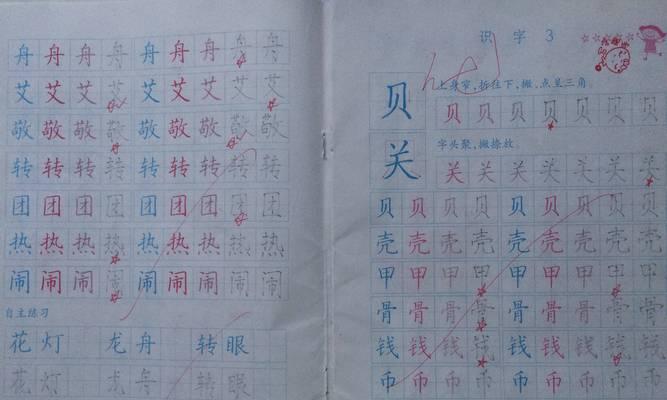 舟 舟 舟 舟 舟 舟 舟 舟 舟
艾 艾 艾 艾 艾 艾 艾 艾 艾
敬 敬 敬 敬 敬 敬 敬 敬 敬
转 转 转 转 转 转 转 转 转
团 团 团 团 团 团 团 团 团
热 热 热 热 热 热 热 热 热
闹 闹 闹 闹 闹 闹 闹 闹 闹
自主练习
花灯 龙舟 转眼
花灯 龙舟 转眼
识字3
贝
上身窄,折往下,撇、点呈三角。
贝 贝 贝 贝 贝 贝 贝
关
字头聚,撇捺放。
关 关 关 关 关 关 关
贝 贝 贝 贝 贝 贝 贝 贝
壳 壳 壳 壳 壳 壳 壳 壳
甲 甲 甲 甲 甲 甲 甲 甲
骨 骨 骨 骨 骨 骨 骨 骨
钱 钱 钱 钱 钱 钱 钱 钱
币 币 币 币 币 币 币 币